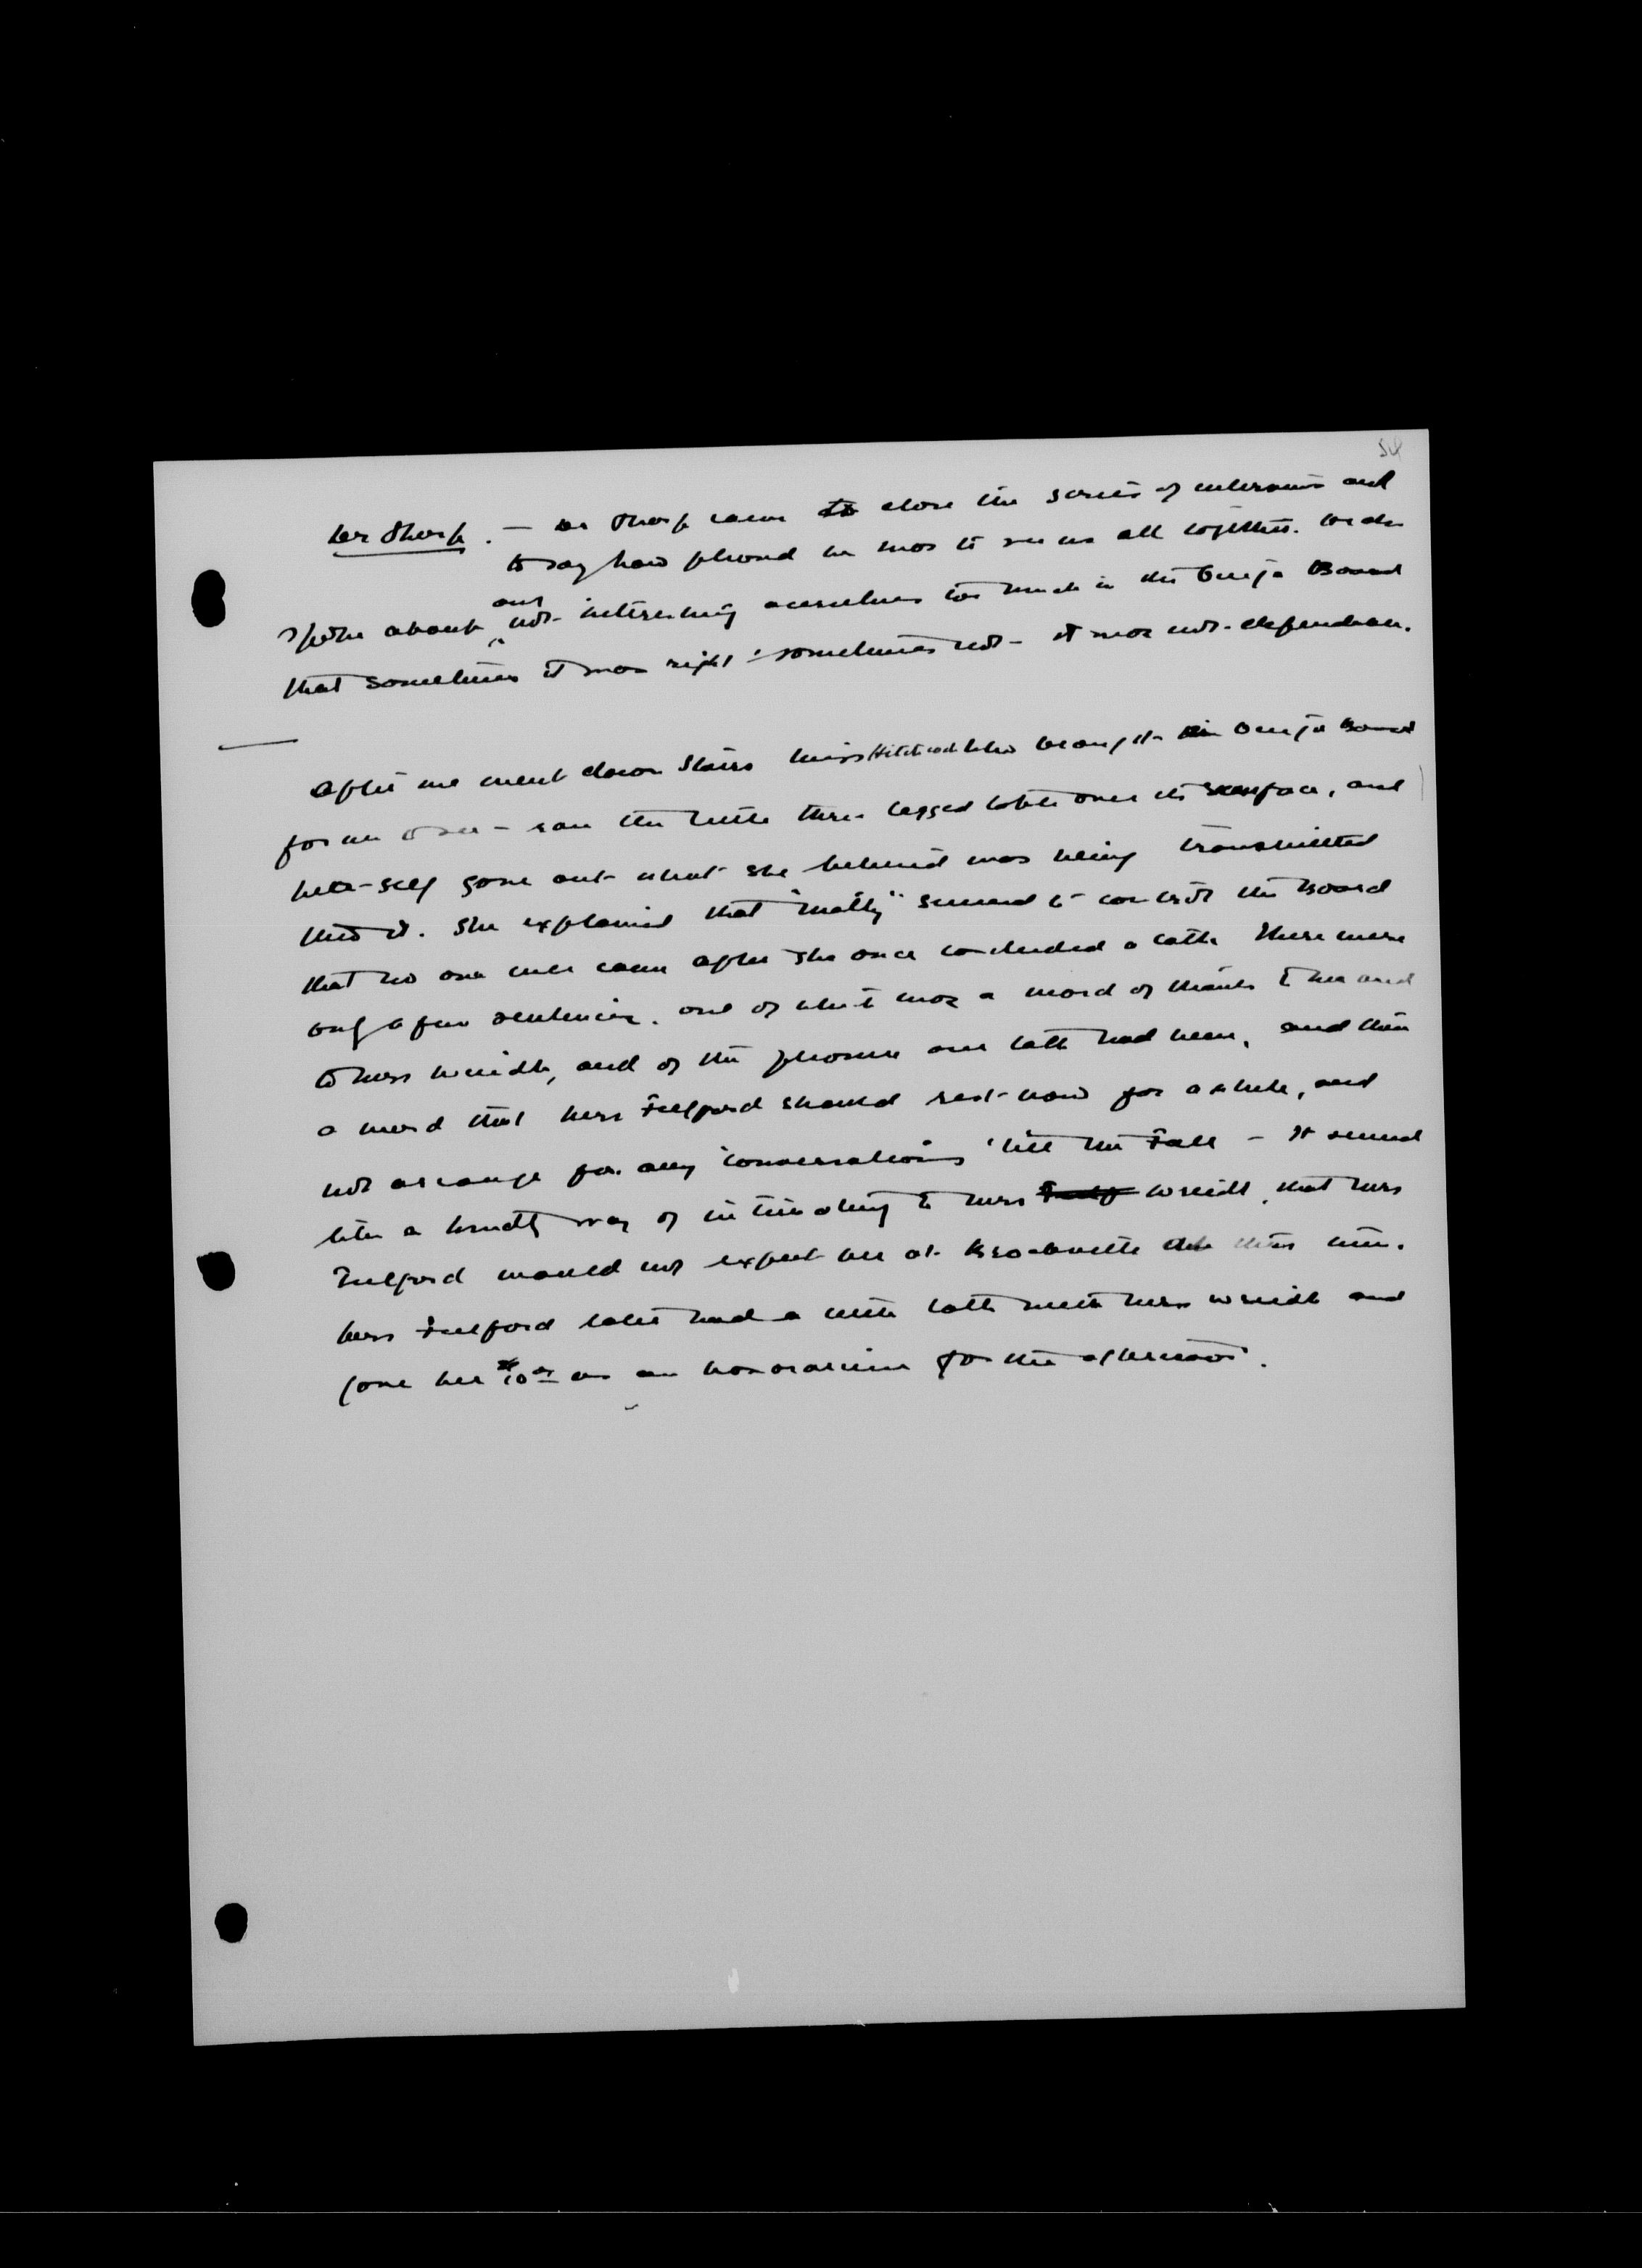 54
Dr Sharp. — Dr Sharp came to close the series of interviews and
to say how pleased he was to see us all together. He also
spoke about our not interesting ourselves too much in the Ouija Board
that sometimes it was right & sometimes not — it was not
After we went down stairs Miss who brought the Ouija Board
for us to see — ran the little three legged table over its surface, and
her-self gave out what she believed was being transmitted
thro it. She explained that "Matty" seemed to control the Board
that no one ever came after she once concluded a talk. There were
only a few sentences. one of which was a word of thanks to her and
to Mrs Wriedt, and of the pleasure our talk had been, and then
a word that Mrs Fulford should rest now for a while, and
not arrange for any conversations 'till the Fall — It seemed
like a kindly way of intimating to Mrs Wriedt, that Mrs
Fulford would not expect her at Brockville this time.
Mrs Fulford later had a little talk with Mrs Wriedt and
gave her $10.00 as an honorarium for the afternoon.